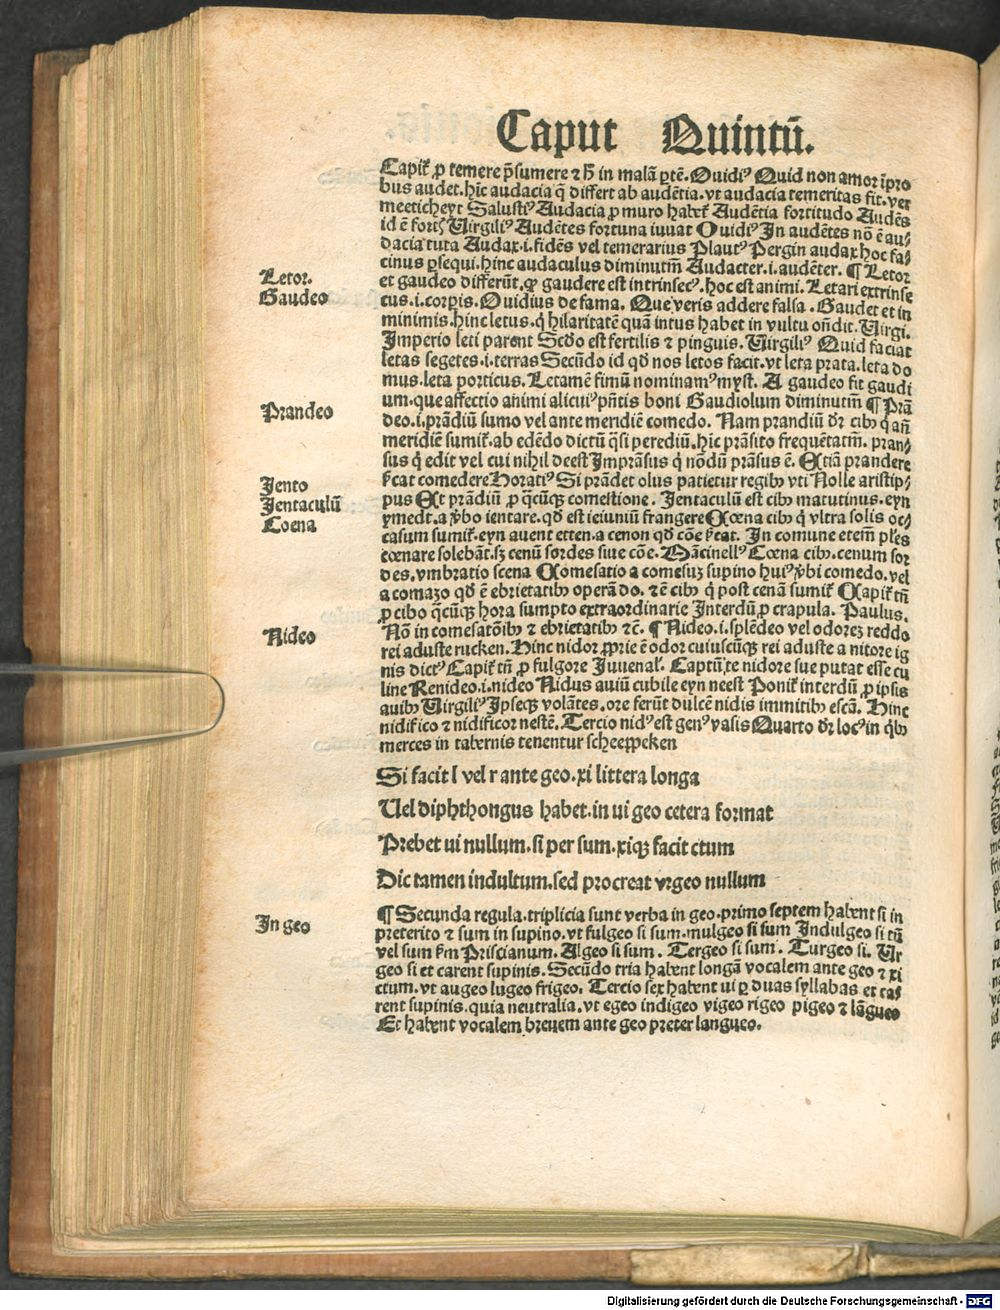 Caput Quintū.
Capit᷑ ꝓ temere p̄sumere ⁊ h̄ in malā ꝑtē. Ouidiꝰ Quid non amor īpro
bus audet. hīc audacia q̄ differt ab audētia. vt audacia temeritas fit. ver
meeticheyt Salustiꝰ Audacia ꝓ muro habet᷑ Audētia fortitudo Audēs
id ē fortis Uirgiliꝰ Audētes fortuna iuuat Ouidiꝰ In audētes nō ē au⸗
dacia tuta Audax .i. fidēs vel temerarius Plautꝰ Pergin audax hoc fa⸗
cinus ꝑsequi. hinc audaculus diminutm̄ Audacter .i. audēter. ¶ Letor
Letor.
et gaudeo differūt. qꝛ gaudere est intrinsecꝰ. hoc est animi. Letari extrinse
Gaudeo
cus .i. corpis. Ouidius de fama. Que veris addere falsa. Gaudet et in
minimis. hinc letus. q̇ hilaritatē quā intus habet in vultu oñdit. Uirgi.
Imperio leti parent Scdo est fertilis ⁊ pinguis. Uirgiliꝰ Quid faciat
letas segetes .i. terras Secūdo id qd̄ nos letos facit. vt leta prata. leta do
mus. leta porticus. Letamē fimū nominamꝰ myst. A gaudeo fit gaudi
um. que affectio animi alicuiꝰ pn̄tis boni Gaudiolum diminutm̄ ¶ Prā
Prandeo
deo .i. prādiū sumo vel ante meridiē comedo. Nam prandiū dr̄ cibꝰ q̇ añ
meridiē sumit᷑. ab edēdo dictū q̄si perediū. hīc prāsito frequētatm̄. pran⸗
sus q̇ edit vel cui nihil deest Imprāsus q̇ nōdū prāsus ē. Etiā prandere
s̓cat comedere Horatiꝰ Si prādet olus patietur regibꝰ vti Nolle aristip⸗
Jento
pus Et prādiū ꝓ q̄cūqꝫ comestione. Jentaculū est cibꝰ matutinus. eyn
Jentaculū
ymedt. a v̓bo ientare. qd̄ est ieiuniū frangere Coena cibꝰ q̇ vltra solis oc⸗
Coena
casum sumit᷑. eyn auent etten. a cenon qd̄ cōe s̓cat. In comune etem̄ pl̄es
coenare solebāt. sꝫ cenū sordes siue cōe. Mācinellꝰ Coena cibꝰ. cenum sor
des. vmbratio scena Comesatio a comesuꝫ supino huiꝰ v̓bi comedo. vel
a comazo qd̄ ē ebrietatibꝰ operā do. ⁊ ē cibꝰ q̇ post cenā sumit᷑ Capit᷑ tn̄
ꝓ cibo q̄cūqꝫ hora sumpto extraordinarie Interdū ꝓ crapula. Paulus.
Nō in comesatōibꝰ ⁊ ebrietatibꝰ ⁊c̄. ¶ Nideo .i. splēdeo vel odoreꝫ reddo
Nideo
rei aduste rucken. Hinc nidor ꝓprie ē odor cuiuscūqꝫ rei aduste a nitore ig
nis dictꝰ Capit᷑ tn̄ ꝓ fulgore Juuenal᷑. Captū te nidore sue putat esse cu
line Renideo .i. nideo Nidus auiū cubile eyn neest Ponit᷑ interdū ꝓ ipsis
auibꝰ Uirgiliꝰ Ipseqꝫ volātes. ore ferūt dulcē nidis immitibꝰ escā. Hinc
nidifico ⁊ nidificor nestē. Tercio nidꝰ est genꝰ vasis Quarto dr̄ locꝰ in q̇bꝰ
merces in tabernis tenentur scheeppeken
Si facit l vel r ante geo. xi littera longa
Uel diphthongus habet. in ui geo cetera format
Prebet ui nullum. si per sum. xiqꝫ facit ctum
Dic tamen indultum. sed procreat vrgeo nullum
¶ Secunda regula. triplicia sunt verba in geo. primo septem habent si in
In geo
preterito ⁊ sum in supino. vt fulgeo si sum. mulgeo si sum Indulgeo si tū
vel sum s̓m Priscianum. Algeo si sum. Tergeo si sum. Turgeo si. Ur
geo si et carent supinis. Secūdo tria habent longā vocalem ante geo ⁊ xi
ctum. vt augeo lugeo frigeo. Tercio sex habent ui ꝑ duas syllabas et ca⸗
rent supinis. quia neutralia. vt egeo indigeo vigeo rigeo pigeo ⁊ lāgueo
Et habent vocalem breuem ante geo preter langueo.
Digitalisierung gefördert durch die Deutsche Forschungsgemeinschaft - DFG